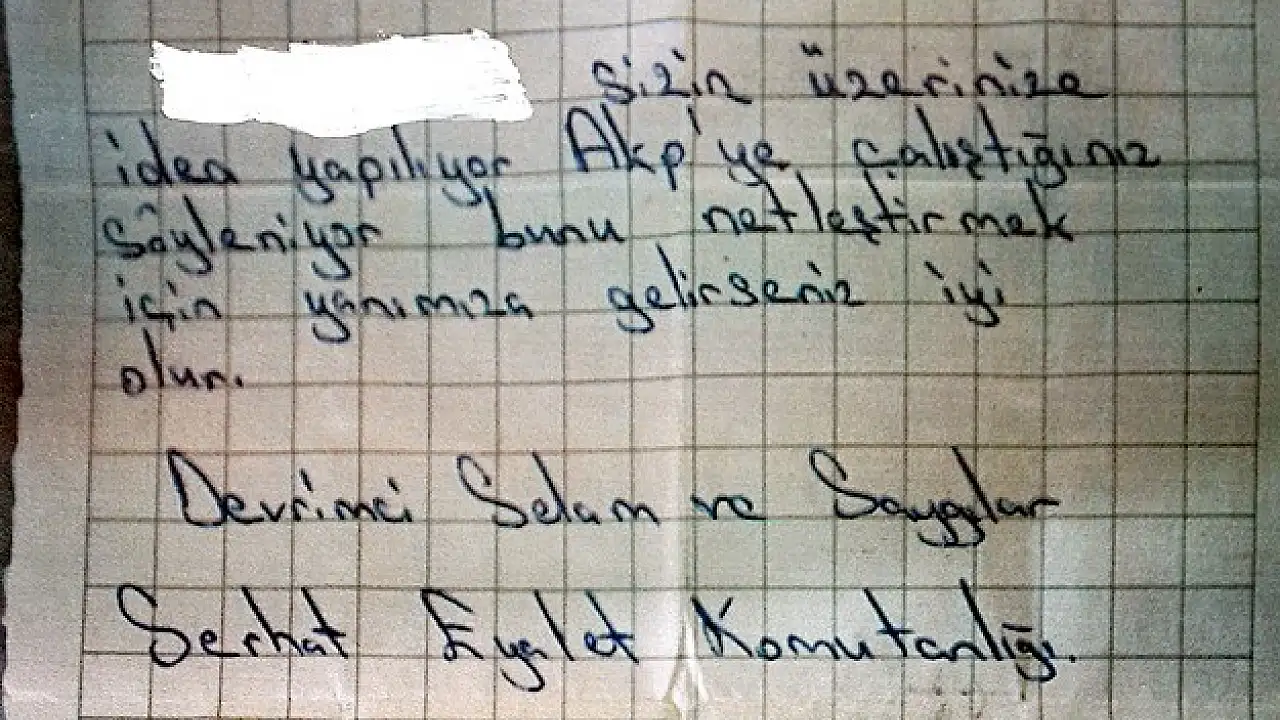 Sizin üzerinize
idea yapılıyor Akp'ye çalıştığınız
söyleniyor bunu netleştirmek
için yanımıza gelirseniz iyi
olur.
Devrimci Selam ve Saygılar
Serhat Eyalet Komutanlığı.